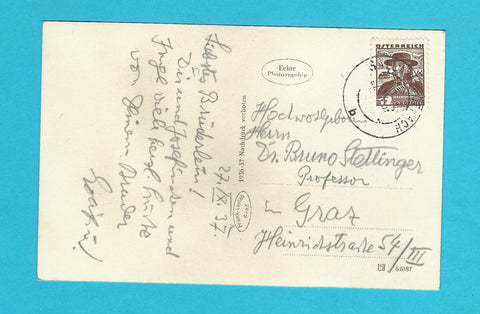 Liebstes Brüderlein!
Dir und Josefinchen und
Inge viele herzl. Grüße
von Deinem Bruder
27. IX. 37.
1936-37 Nachdruck verboten
Echte
Photographie
ÖSTERREICH
Hochwohlgeboren
Herrn
Dr. Bruno Stettinger
Professor
Graz
Heinrichstraße 54/III
64087